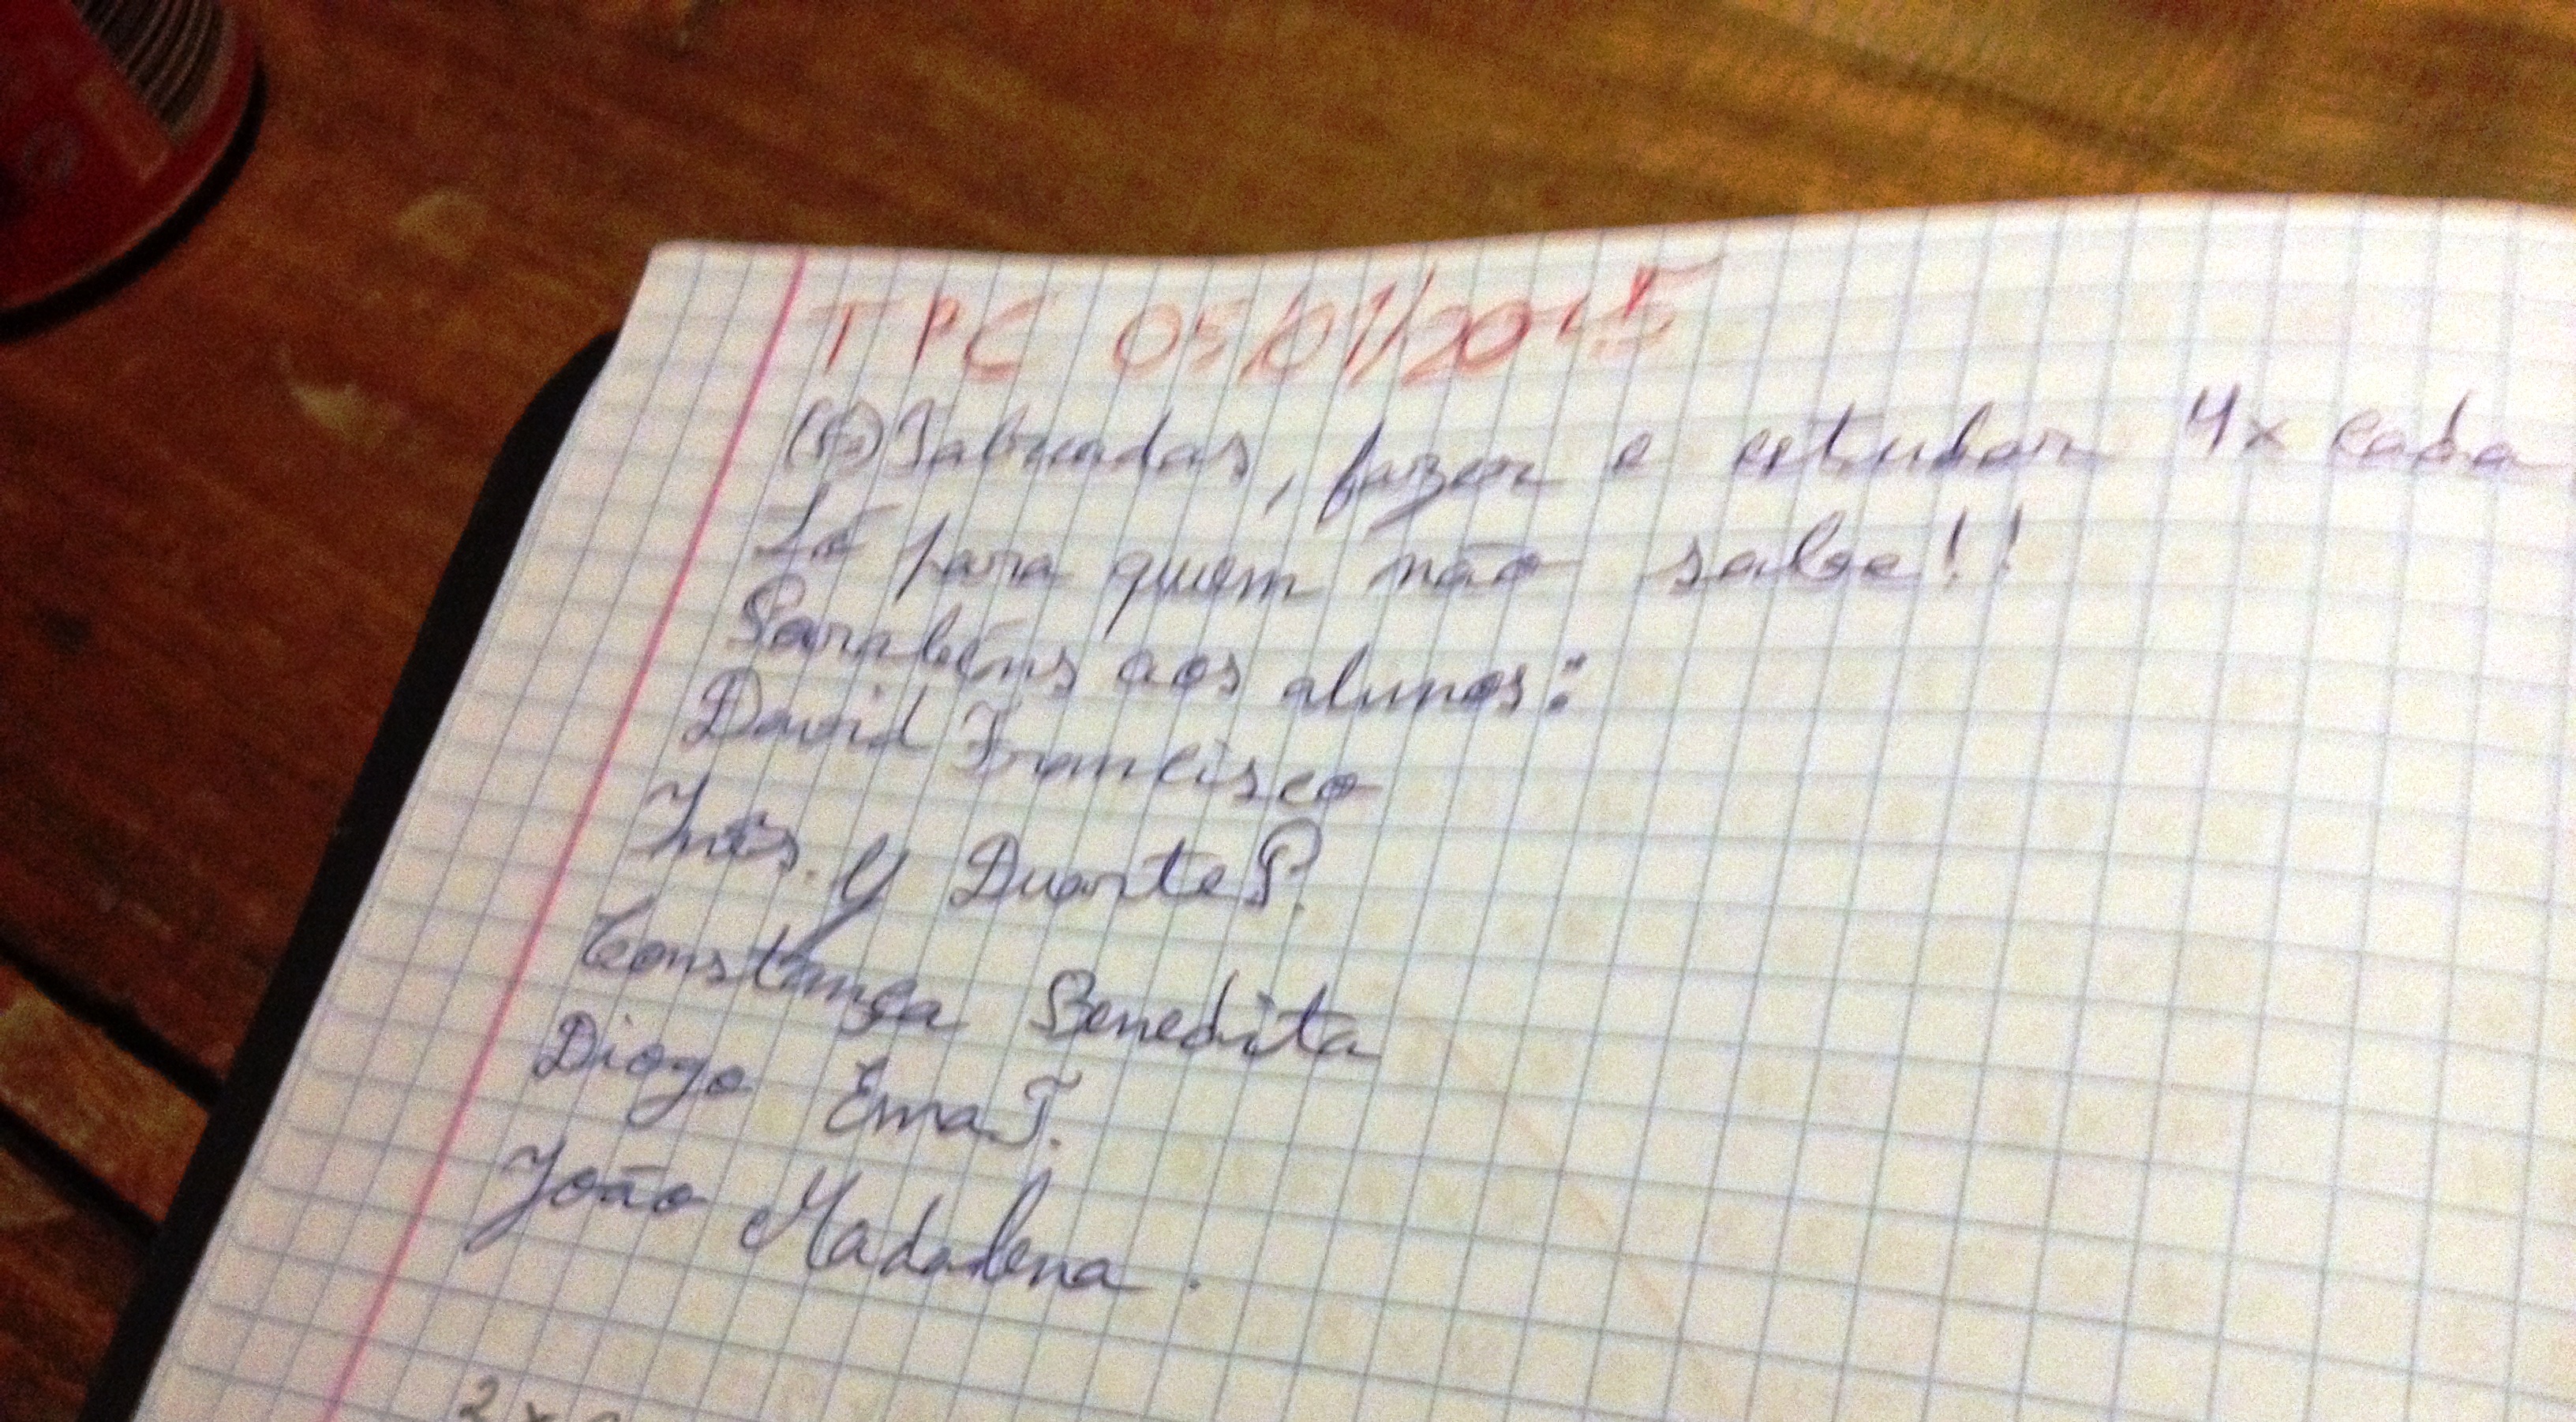 TPC 05/01/2015
Tabuadas, fazer e estudar 4x cada
Só para quem não sabe!!
Parabéns aos alunos:
David Francisco
Inês. Y Duarte P.
Constança Benedita
Diogo Ema T.
João Madalena.
2 x